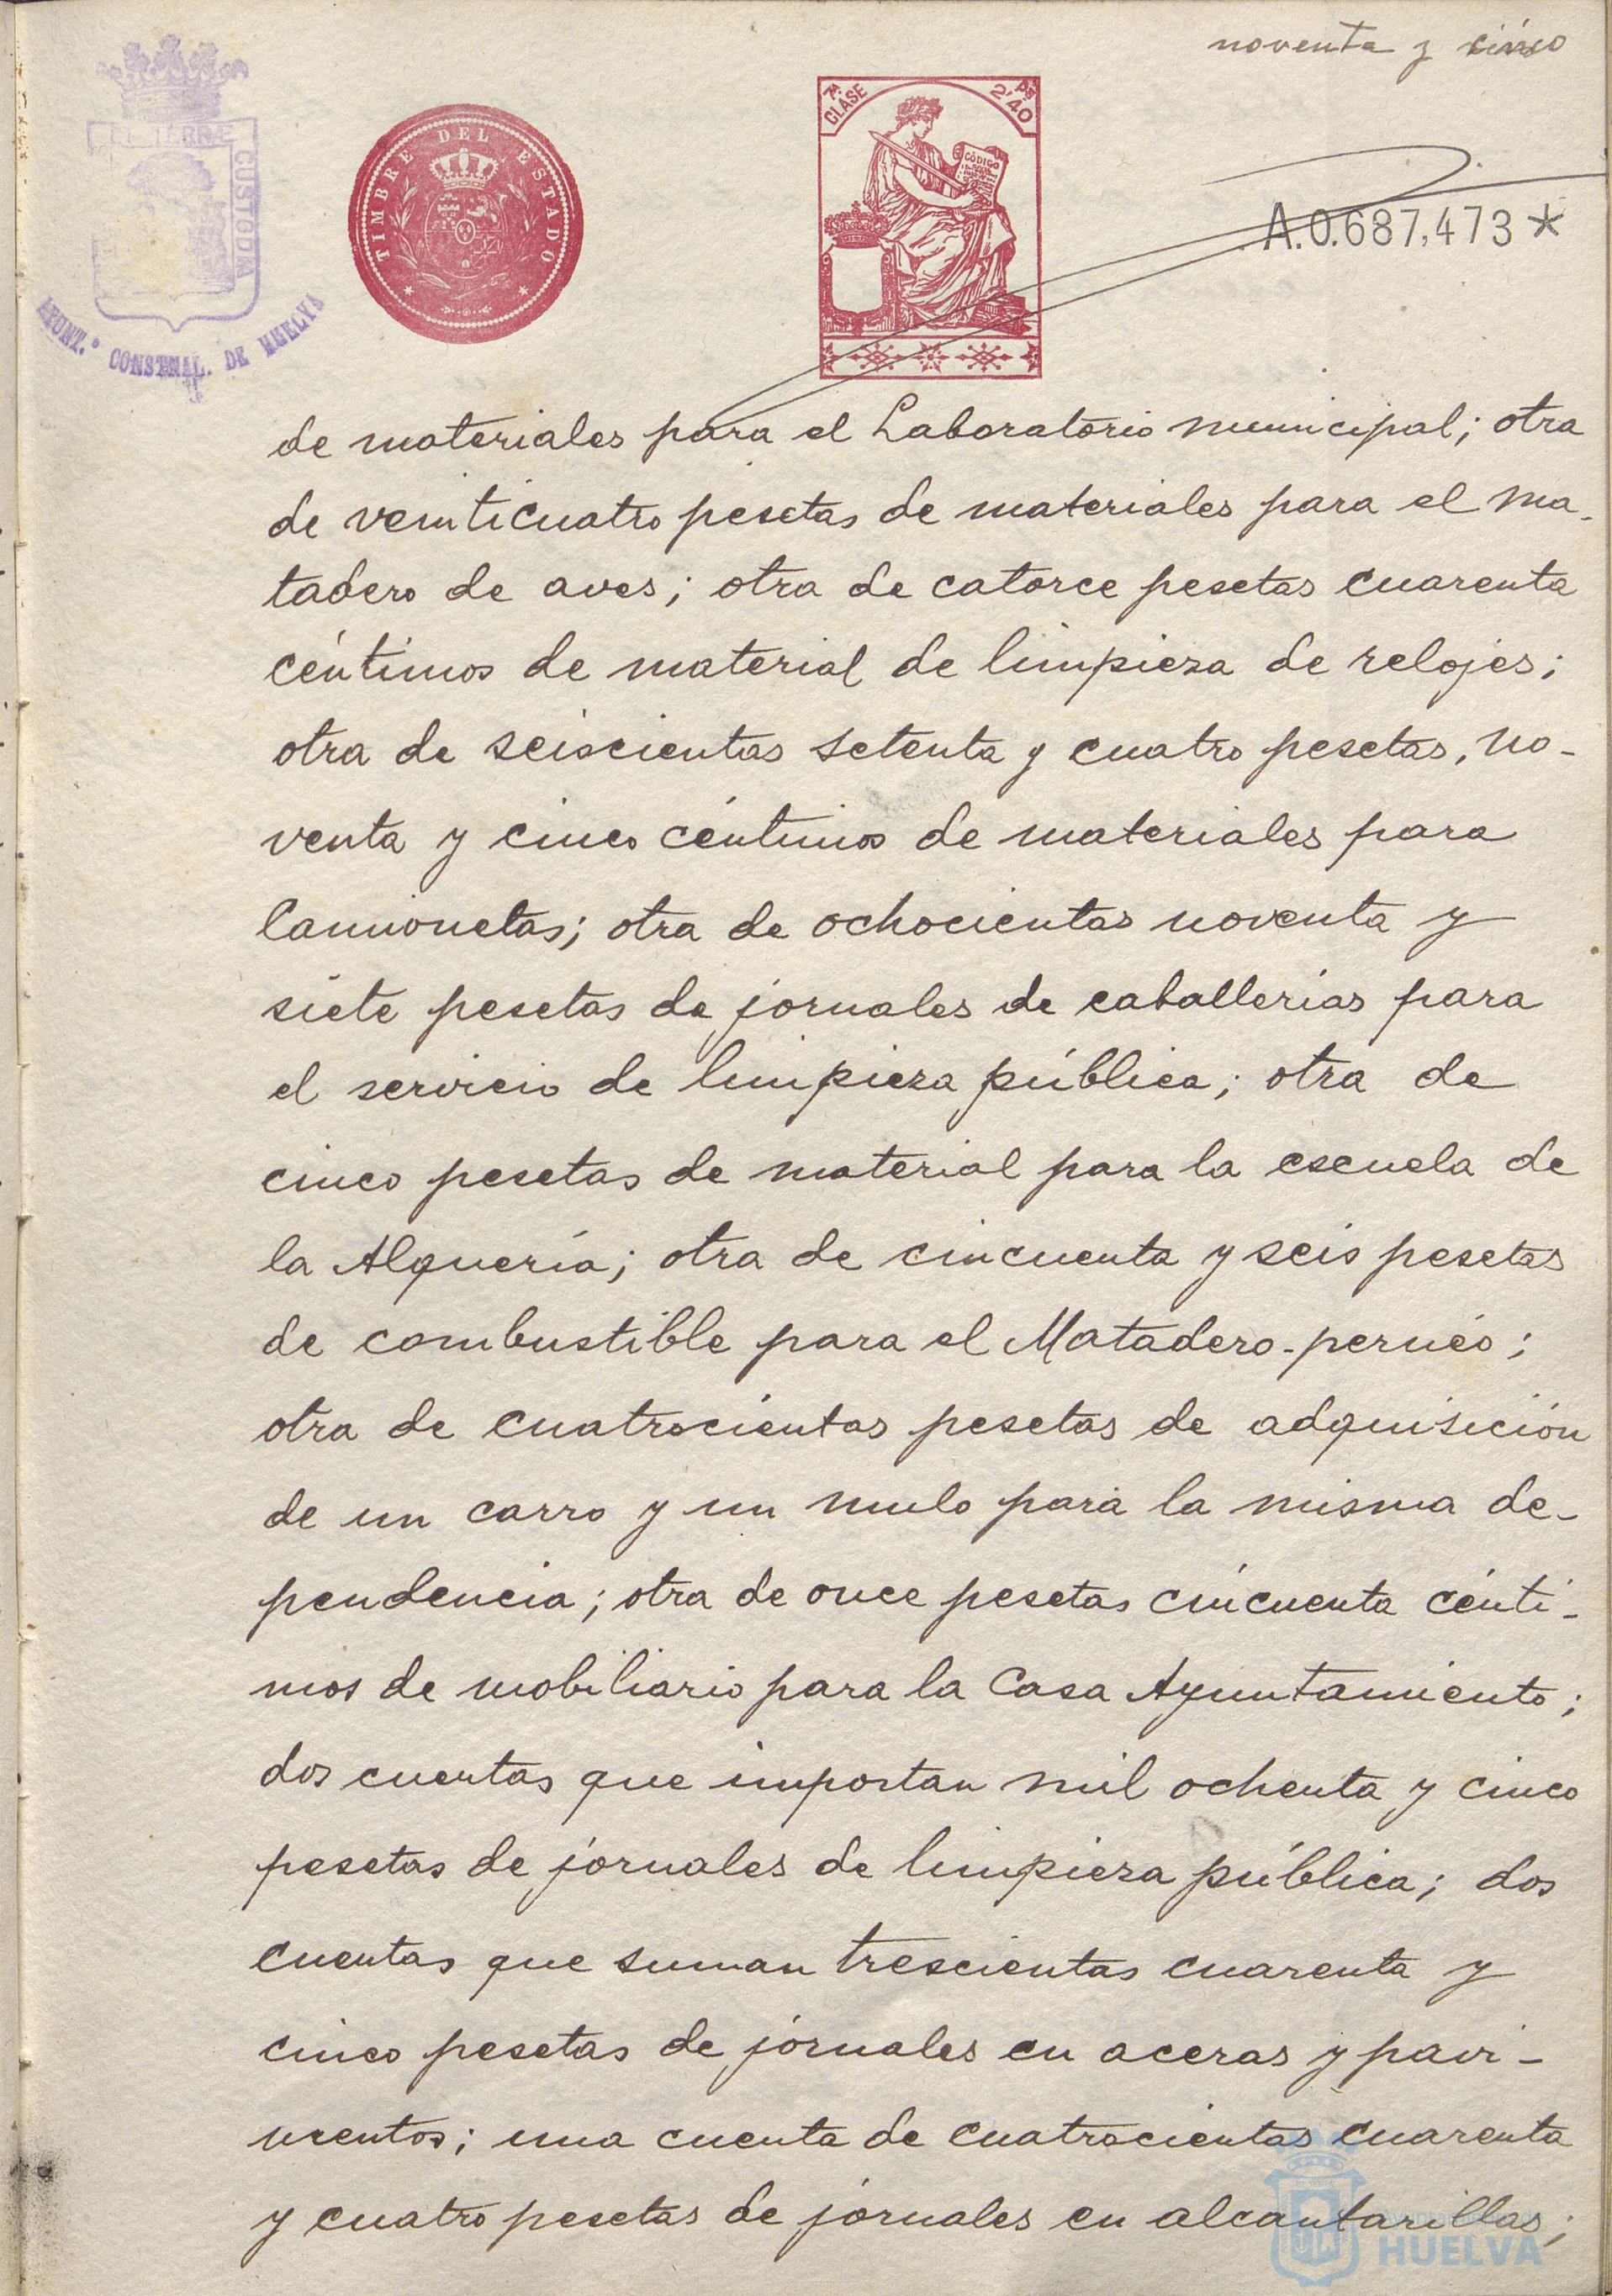 noventa y cinco
7ª CLASE
2'40 Pts
CÓDIGO
TIMBRE DEL ESTADO
CUSTODIA
AYUNT.º CONSTNAL. DE HUELVA
A.0.687,473*
de materiales para el Laboratorio municipal; otra
de veinticuatro pesetas de materiales para el ma-
tadero de aves; otra de catorce pesetas cuarenta
céntimos de material de limpieza de relojes;
otra de seiscientas setenta y cuatro pesetas, no-
venta y cinco céntimos de materiales para
Camionetas; otra de ochocientas noventa y
siete pesetas de jornales de caballerías para
el servicio de limpieza pública; otra de
cinco pesetas de material para la escuela de
la Alquería; otra de cincuenta y seis pesetas
de combustible para el Matadero-perneo;
otra de cuatrocientas pesetas de adquisición
de un carro y un mulo para la misma de-
pendencia; otra de once pesetas cincuenta cénti-
mos de mobiliario para la Casa Ayuntamiento;
dos cuentas que importan mil ochenta y cinco
pesetas de jornales de limpieza pública; dos
cuentas que suman trescientas cuarenta y
cinco pesetas de jornales en aceras y pavi-
mentos; una cuenta de cuatrocientas cuarenta
y cuatro pesetas de jornales en alcantarillas;
HUELVA